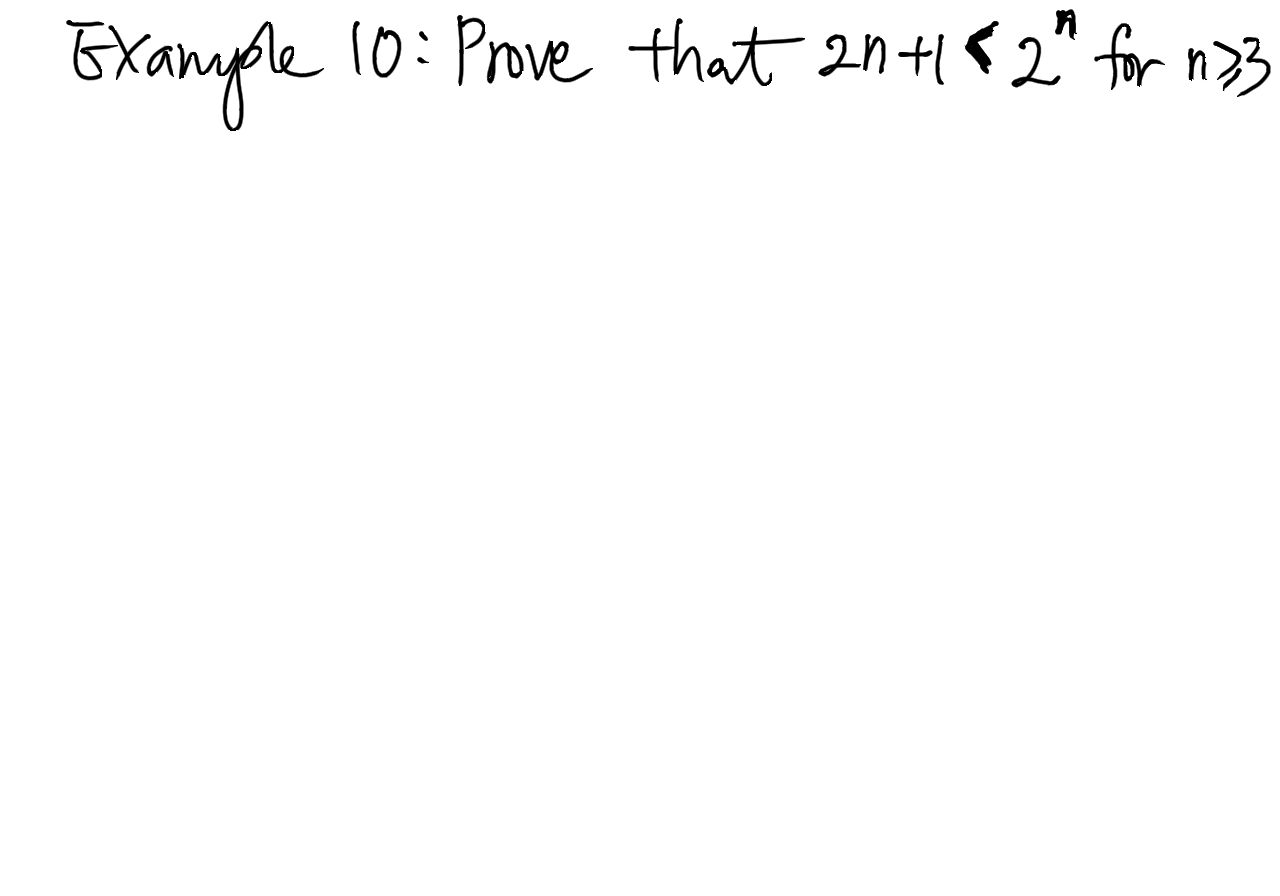 Example 10: Prove that 2n+1 < 2ⁿ for n⩾3